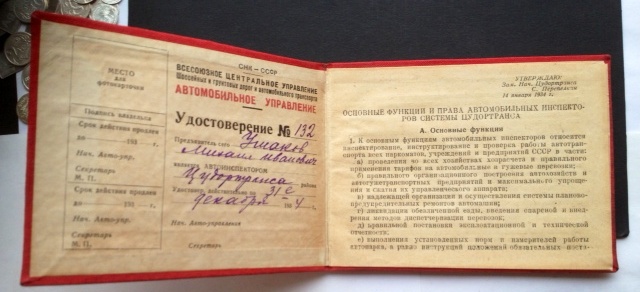 МЕСТО
для
фотокарточки
Подпись владельца
Срок действия продлен
до 193 г.
Нач. Авто-упр.
Секретарь
М. П.
Срок действия продлен
до 193 г.
Нач. Авто-упр.
Секретарь
М. П.
СНК — СССР
ВСЕСОЮЗНОЕ ЦЕНТРАЛЬНОЕ УПРАВЛЕНИЕ
Шоссейных и грунтовых дорог и автомобильного транспорта
АВТОМОБИЛЬНОЕ УПРАВЛЕНИЕ
Удостоверение № 132
Предъявитель сего Ушаков
Михаил Иванович
является АВТОИНСПЕКТОРОМ
Цудортранса района
Удостовер. действительно по 31е
декабря 193 4
Нач. Авто-управления
Секретарь
УТВЕРЖДАЮ
Зам. Нач. Цудортранса
С.
14 января 1934 г.
ОСНОВНЫЕ ФУНКЦИИ И ПРАВА АВТОМОБИЛЬНЫХ ИНСПЕКТО-
РОВ СИСТЕМЫ ЦУДОРТРАНСА
А. Основные функции
1. К основным функциям автомобильных инспекторов относятся
инспектирование, инструктирование и проверка работы автотран-
спорта всех наркоматов, учреждений и предприятий СССР в части:
а) проведения во всех хозяйствах хозрасчета и правильного
применения тарифов на автомобильные и гужевые перевозки;
б) правильного организационного построения автохозяйств и
автогужетранспортных предприятий и максимального упроще-
ния и сжатия их управленческого аппарата;
в) надлежащей организации и осуществления системы планово-
предупредительных ремонтов автомашин;
г) ликвидации обезлички езды, введения спаренной и внедре-
ния методов диспетчеризации перевозок;
д) правильной постановки эксплоатационной и технической
отчетности;
е) выполнения установленных норм и измерителей работы
автопарка, а равно инструкций изложений обязательных поста-